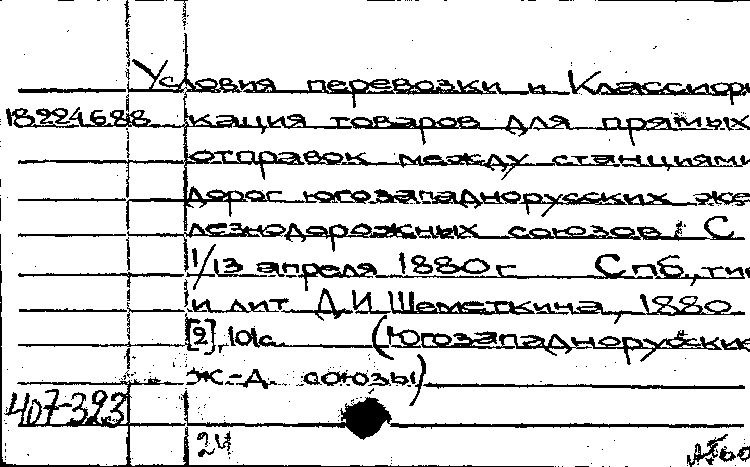 Условия перевозки и Классифи
18224688 кация товаров для прямых
отправок между станциями
дорог югозападнорусских же
лезнодорожных союзов. С
1/13 апреля 1880 г. Спб., тип
и лит. Д.И. Шеметкина, 1880
[2], 101с. (Югозападнорусские
ж-д. союзы)
407-393
24